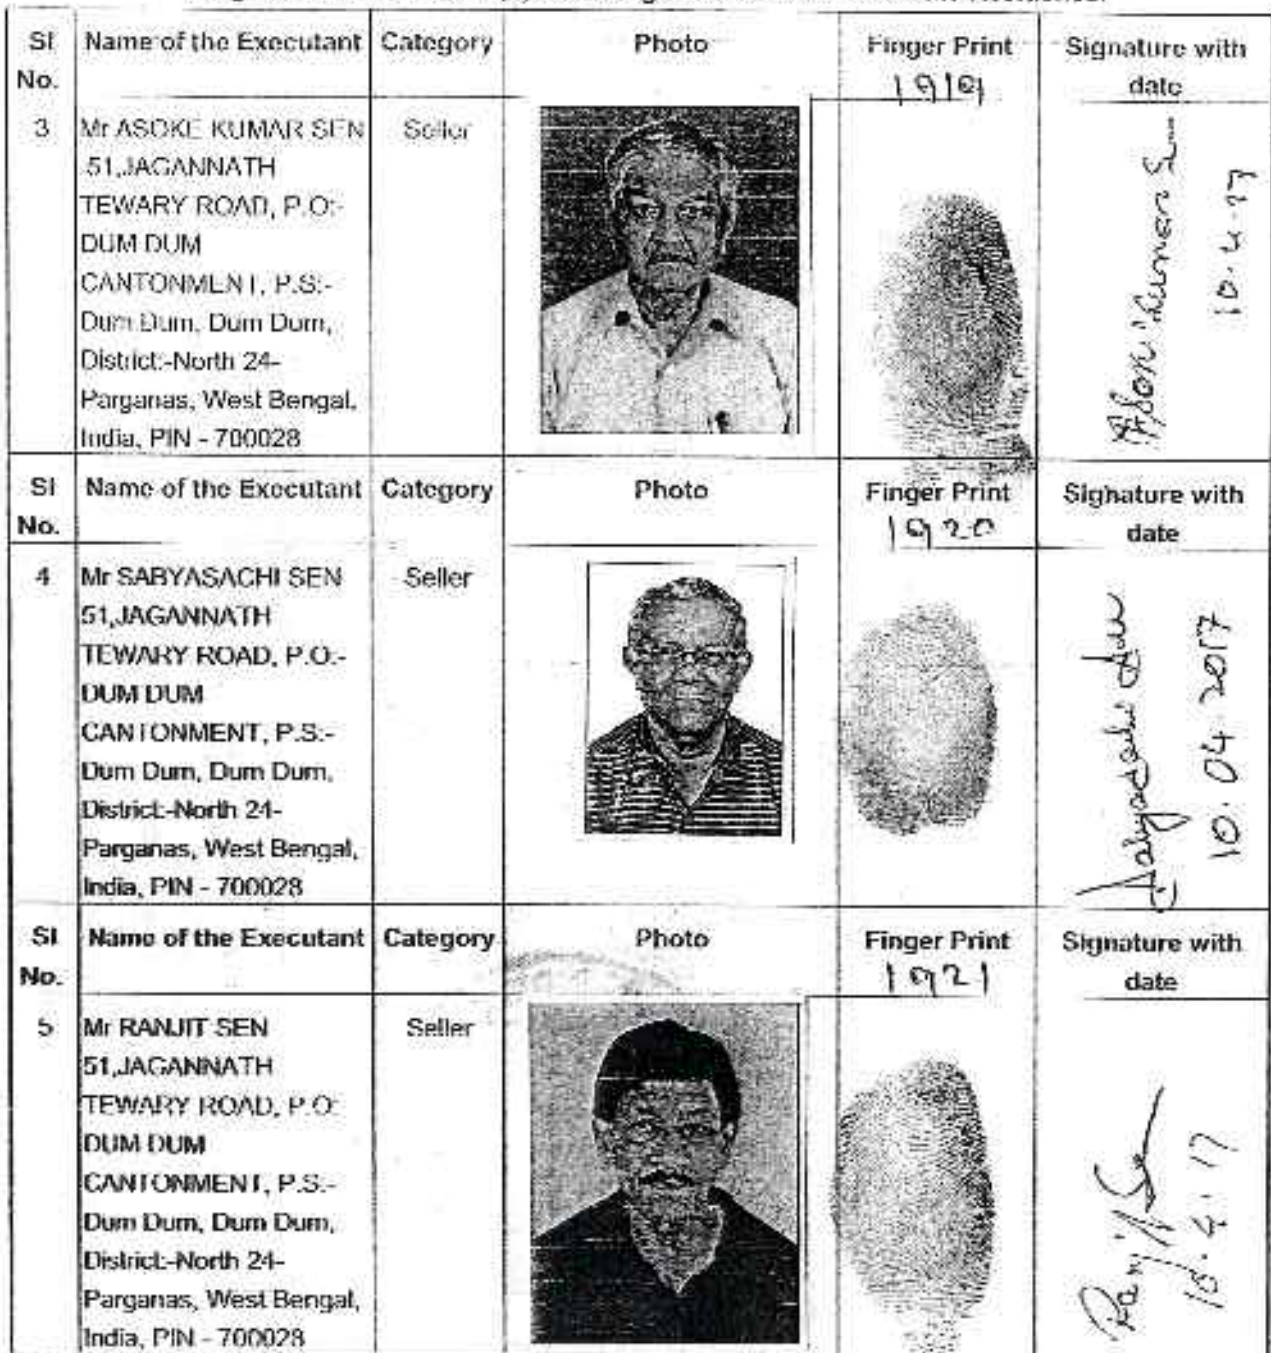 Sl No.
Name of the Executant
Category
Photo
Finger Print
1919
Signature with date
3
Mr ASOKE KUMAR SEN
51,JAGANNATH
TEWARY ROAD, P.O:-
DUM DUM
CANTONMENT, P.S:-
Dum Dum, Dum Dum,
District:-North 24-
Parganas, West Bengal,
India, PIN - 700028
Seller
Kumar
Sl No.
Name of the Executant
Category
Photo
Finger Print
1920
Signature with date
4
Mr SABYASACHI SEN
51,JAGANNATH
TEWARY ROAD, P.O:-
DUM DUM
CANTONMENT, P.S:-
Dum Dum, Dum Dum,
District:-North 24-
Parganas, West Bengal,
India, PIN - 700028
Seller
Sabyasachi Sen
10.04.2017
Sl No.
Name of the Executant
Category
Photo
Finger Print
1921
Signature with date
5
Mr RANJIT SEN
51,JAGANNATH
TEWARY ROAD, P.O:
DUM DUM
CANTONMENT, P.S:-
Dum Dum, Dum Dum,
District:-North 24-
Parganas, West Bengal,
India, PIN - 700028
Seller
Ranjit Sen
10.4.17